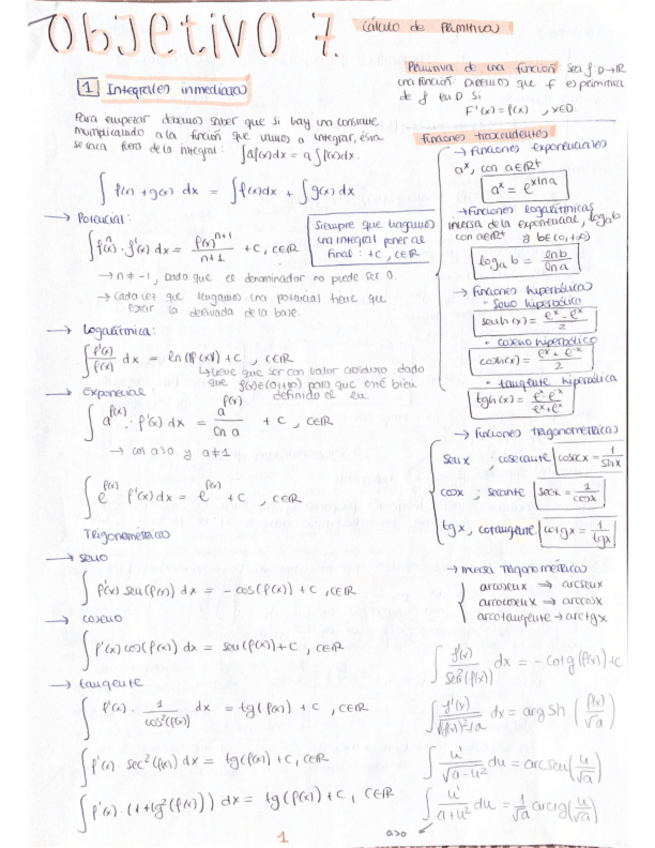 Objetivo 7.
Cálculo de Primitivas
Primitiva de una función: sea f: D→ℝ
una función. Diremos que F es primitiva
de f en D si
F'(x) = f(x) , x∈D.
1 Integrales inmediatas
Para empezar debemos saber que si hay una constante
multiplicando a la función que vamos a integrar, ésta
se saca fuera de la integral: ∫a f(x) dx = a ∫f(x)dx.
∫ f(x) + g(x) dx = ∫f(x)dx + ∫g(x) dx
→ Potencial:
∫ fⁿ(x) · f'(x) dx = f(x)^(n+1) / (n+1) + C, C∈ℝ
Siempre que hagamos
una integral poner al
final: +C, C∈ℝ
→ n ≠ -1, Dado que el denominador no puede ser 0.
→ Cada vez que tengamos una potencial tiene que
estar la derivada de la base.
→ Logarítmica:
∫ f'(x)/f(x) dx = ln(|f(x)|) + C , C∈ℝ
↳ tiene que ser con valor absoluto dado
que f(x)∈(0,+∞) para que esté bien
definido el ln
→ Exponencial:
∫ a^f(x) · f'(x) dx = a^f(x) / ln a + C , C∈ℝ
→ con a>0 y a≠1
∫ e^f(x) · f'(x) dx = e^f(x) + C , C∈ℝ
Trigonométricas
→ seno
∫ f'(x) sen(f(x)) dx = - cos(f(x)) + C , C∈ℝ
→ coseno
∫ f'(x) cos(f(x)) dx = sen(f(x)) + C , C∈ℝ
→ tangente
∫ f'(x) · 1/cos²(f(x)) dx = tg(f(x)) + C, C∈ℝ
∫ f'(x) · sec²(f(x)) dx = tg(f(x)) + C, C∈ℝ
∫ f'(x) · (1+tg²(f(x))) dx = tg(f(x)) + C, C∈ℝ
1
Funciones trascendentes
→ Funciones exponenciales
aˣ, con a∈ℝ⁺
aˣ = e^(x ln a)
→ Funciones logarítmicas
inversa de la exponencial, logₐb
con a∈ℝ⁺ y b∈(0,+∞)
logₐ b = ln b / ln a
→ Funciones hiperbólicas
· Seno hiperbólico
senh(x) = (eˣ - e⁻ˣ)/2
· coseno hiperbólico
cosh(x) = (eˣ + e⁻ˣ)/2
· tangente hiperbólica
tgh(x) = (eˣ - e⁻ˣ)/(eˣ + e⁻ˣ)
→ Funciones trigonométricas
sen x ; cosecante cosec x = 1/sen x
cos x ; secante sec x = 1/cos x
tg x , cotangente cotg x = 1/tg x
→ Inversas trigonométricas
arcoseno x ⇒ arcsen x
arcocoseno x ⇒ arccos x
arcotangente → arctg x
∫ f'(x)/sen²(f(x)) dx = - cotg(f(x)) + C
∫ f'(x)/√(f(x)²+a) dx = arg Sh (f(x)/√a)
∫ u'/√(a-u²) du = arcsen(u/√a)
∫ u'/(a+u²) du = 1/√a arctg(u/√a)
a>0